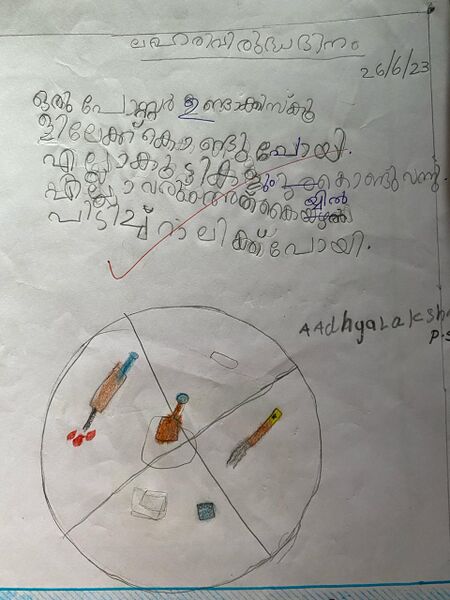 ലഹരിവിരുദ്ധദിനം
26/6/23
ഒരു പോസ്റ്റർ ഉണ്ടാക്കിസ്കൂ
ളിലേക്ക് കൊണ്ടുപോയി.
എല്ലാകുട്ടികളും കൊണ്ടുവന്നു.
എല്ലാവരും കൈയ്യിൽ
പിടിച്ച് റാലിക്ക് പോയി.
AAdhyaLaksh